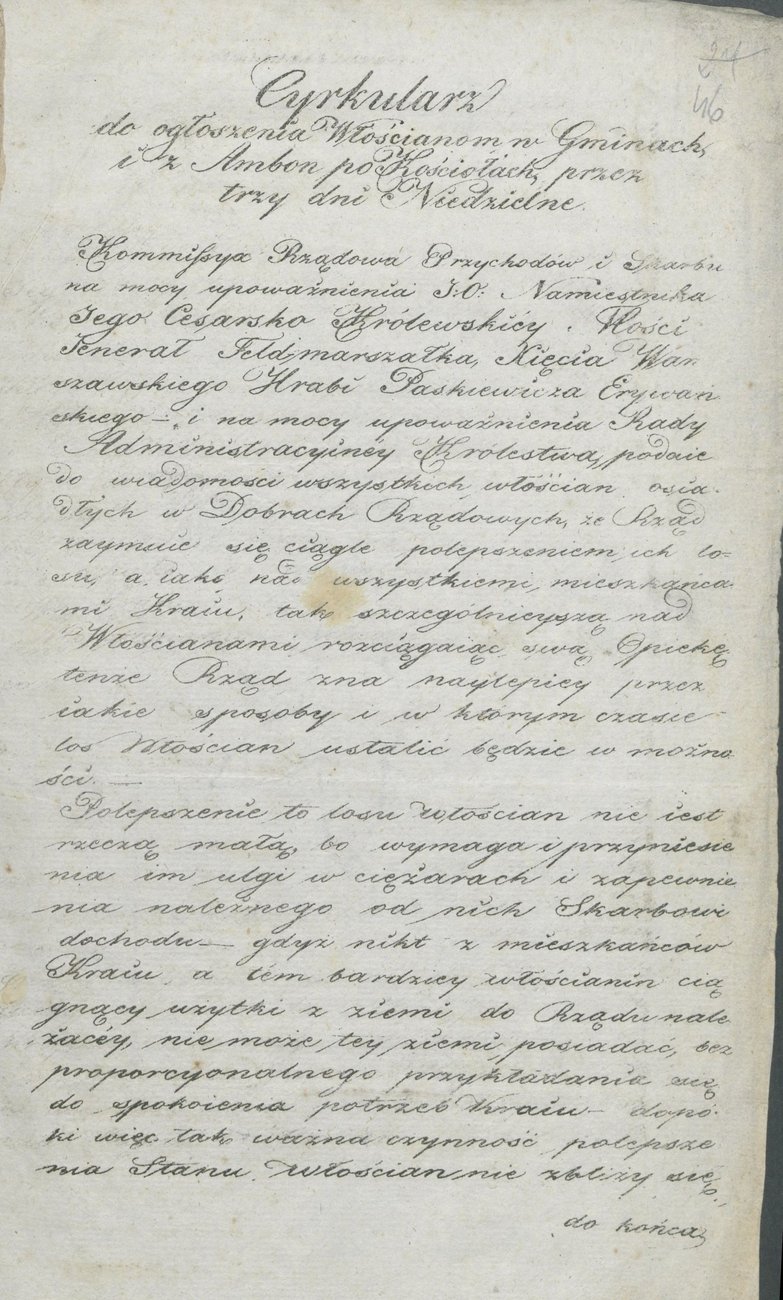 24
46
Cyrkularz
do ogłoszenia Włościanom w Gminach,
i z Ambon po Kościołach, przez
trzy dni Niedzielne.
Kommissya Rządowa Przychodów i Skarbu
na mocy upoważnienia J:O: Namiestnika
Jego Cesarsko Królewskiéy Mości
Jenerał Feldmarszałka, Xięcia War
szawskiego Hrabi Paskiewicza Erywań
skiego — i na mocy upoważnienia Rady
Administracyinéy Królestwa, podaie
do wiadomości wszystkich włościan osia-
dłych w Dobrach Rządowych, że Rząd
zaymuie się ciągle polepszeniem ich lo-
su, a iako nad wszystkiemi mieszkańca
mi Kraiu, tak szczególnieyszą nad
Włościanami rozciągaiąc swą Opiekę
tenże Rząd zna naylepiey przez
iakie sposoby i w którym czasie
los Włościan ustalić będzie w możno
ści. —
Polepszenie to losu włościan nie iest
rzeczą małą, bo wymaga i przyniesie
nia im ulgi w ciężarach i zapewnie
nia należnego od nich Skarbowi
dochodu — gdyż nikt z mieszkańców
Kraiu, a tém bardziey włościanin cią
gnący użytki z ziemi do Rządu nale
żacéy, nie może tey ziemi posiadać, bez
proporcyonalnego przykładania się
do spokoienia potrzeb Kraiu — dopó-
ki więc tak ważna czynność polepsze
nia Stanu włościan nie zbliży się
do końca,